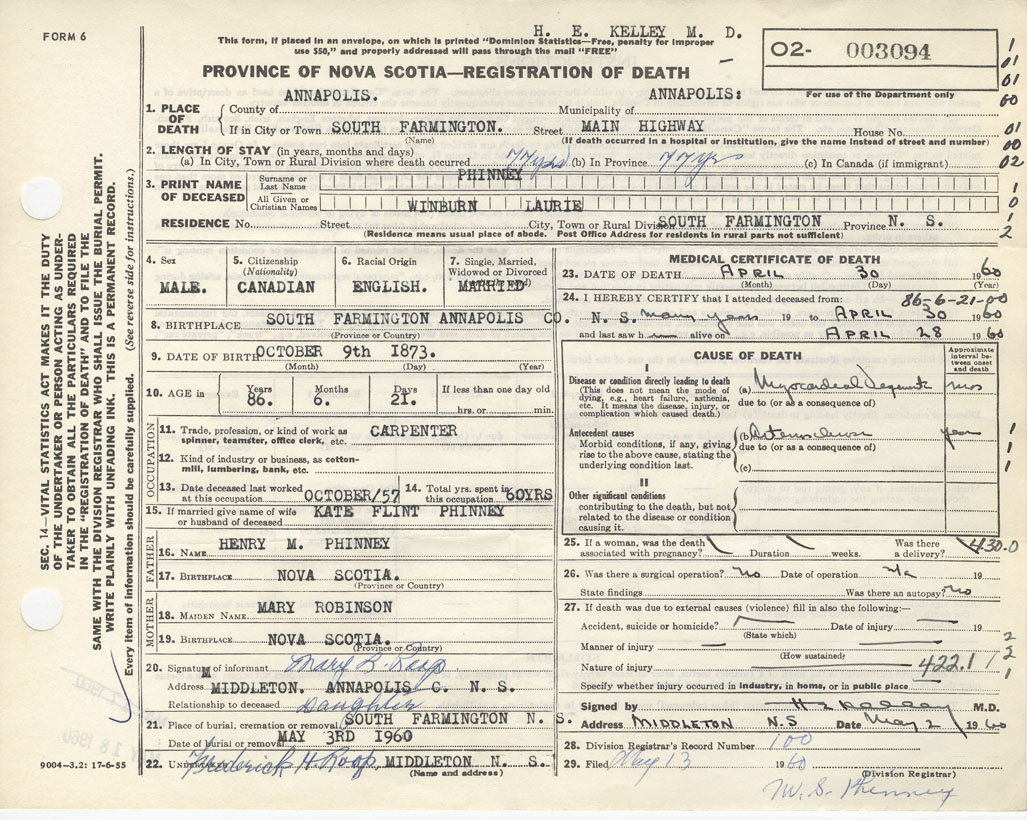 FORM 6
H. E. KELLEY M. D.
This form, if placed in an envelope, on which is printed "Dominion Statistics—Free, penalty for improper
use $50," and properly addressed will pass through the mail "FREE"
02- 003094
For use of the Department only
PROVINCE OF NOVA SCOTIA—REGISTRATION OF DEATH
1. PLACE OF DEATH
County of ANNAPOLIS. Municipality of ANNAPOLIS:
If in City or Town SOUTH FARMINGTON. Street MAIN HIGHWAY House No.
(Name) (If death occurred in a hospital or institution, give the name instead of street and number)
2. LENGTH OF STAY (in years, months and days)
(a) In City, Town or Rural Division where death occurred 77 yrs (b) In Province 77 yrs (c) In Canada (if immigrant)
3. PRINT NAME OF DECEASED
Surname or Last Name PHINNEY
All Given or Christian Names WINBURN LAURIE
RESIDENCE No. Street City, Town or Rural Division SOUTH FARMINGTON Province N. S.
(Residence means usual place of abode. Post Office Address for residents in rural parts not sufficient)
4. Sex MALE.
5. Citizenship (Nationality) CANADIAN
6. Racial Origin ENGLISH.
7. Single, Married, Widowed or Divorced MARRIED
8. BIRTHPLACE SOUTH FARMINGTON ANNAPOLIS CO. N. S.
(Province or Country)
9. DATE OF BIRTH OCTOBER 9th 1873.
(Month) (Day) (Year)
10. AGE in Years 86. Months 6. Days 21. If less than one day old
hrs. or min.
OCCUPATION
11. Trade, profession, or kind of work as spinner, teamster, office clerk, etc. CARPENTER
12. Kind of industry or business, as cotton-mill, lumbering, bank, etc.
13. Date deceased last worked at this occupation OCTOBER/57
14. Total yrs. spent in this occupation 60YRS
15. If married give name of wife or husband of deceased KATE FLINT PHINNEY
FATHER
16. NAME HENRY M. PHINNEY
17. BIRTHPLACE NOVA SCOTIA.
(Province or Country)
MOTHER
18. MAIDEN NAME MARY ROBINSON
19. BIRTHPLACE NOVA SCOTIA.
(Province or Country)
20. Signature of informant Mary L. Roop
Address MIDDLETON. ANNAPOLIS C. N. S.
Relationship to deceased Daughter
21. Place of burial, cremation or removal SOUTH FARMINGTON N. S.
Date of burial or removal MAY 3RD 1960
22. UNDERTAKER Frederick H. Roop, MIDDLETON N. S.
(Name and address)
MEDICAL CERTIFICATE OF DEATH
23. DATE OF DEATH APRIL 30 1960
(Month) (Day) (Year)
24. I HEREBY CERTIFY that I attended deceased from: 86-6-21-00
many years 19 to APRIL 30 1960
and last saw h alive on APRIL 28 1960
CAUSE OF DEATH
Approximate interval between onset and death
I
Disease or condition directly leading to death (a) Myocardial mos
(This does not mean the mode of dying, e.g., heart failure, asthenia, etc. It means the disease, injury, or complication which caused death.)
due to (or as a consequence of)
Antecedent causes (b)
Morbid conditions, if any, giving rise to the above cause, stating the underlying condition last.
due to (or as a consequence of)
(c)
II
Other significant conditions
contributing to the death, but not related to the disease or condition causing it.
25. If a woman, was the death associated with pregnancy? Duration weeks. Was there a delivery? 430.0
26. Was there a surgical operation? no Date of operation n/a 19
State findings Was there an autopsy? no
27. If death was due to external causes (violence) fill in also the following:—
Accident, suicide or homicide? Date of injury 19
(State which)
Manner of injury
(How sustained)
Nature of injury 422.1
Specify whether injury occurred in industry, in home, or in public place
Signed by H E Kelley M.D.
Address MIDDLETON N.S Date May 2 1960
28. Division Registrar's Record Number 100
29. Filed May 13 1960
(Division Registrar)
W. S. Phinney
SEC. 14—VITAL STATISTICS ACT MAKES IT THE DUTY
OF THE UNDERTAKER OR PERSON ACTING AS UNDER-
TAKER TO OBTAIN ALL THE PARTICULARS REQUIRED
IN THE "REGISTRATION OF DEATH" AND TO FILE THE
SAME WITH THE DIVISION REGISTRAR WHO SHALL ISSUE THE BURIAL PERMIT.
WRITE PLAINLY WITH UNFADING INK. THIS IS A PERMANENT RECORD.
Every item of information should be carefully supplied. (See reverse side for instructions.)
9004-3.2: 17-6-55